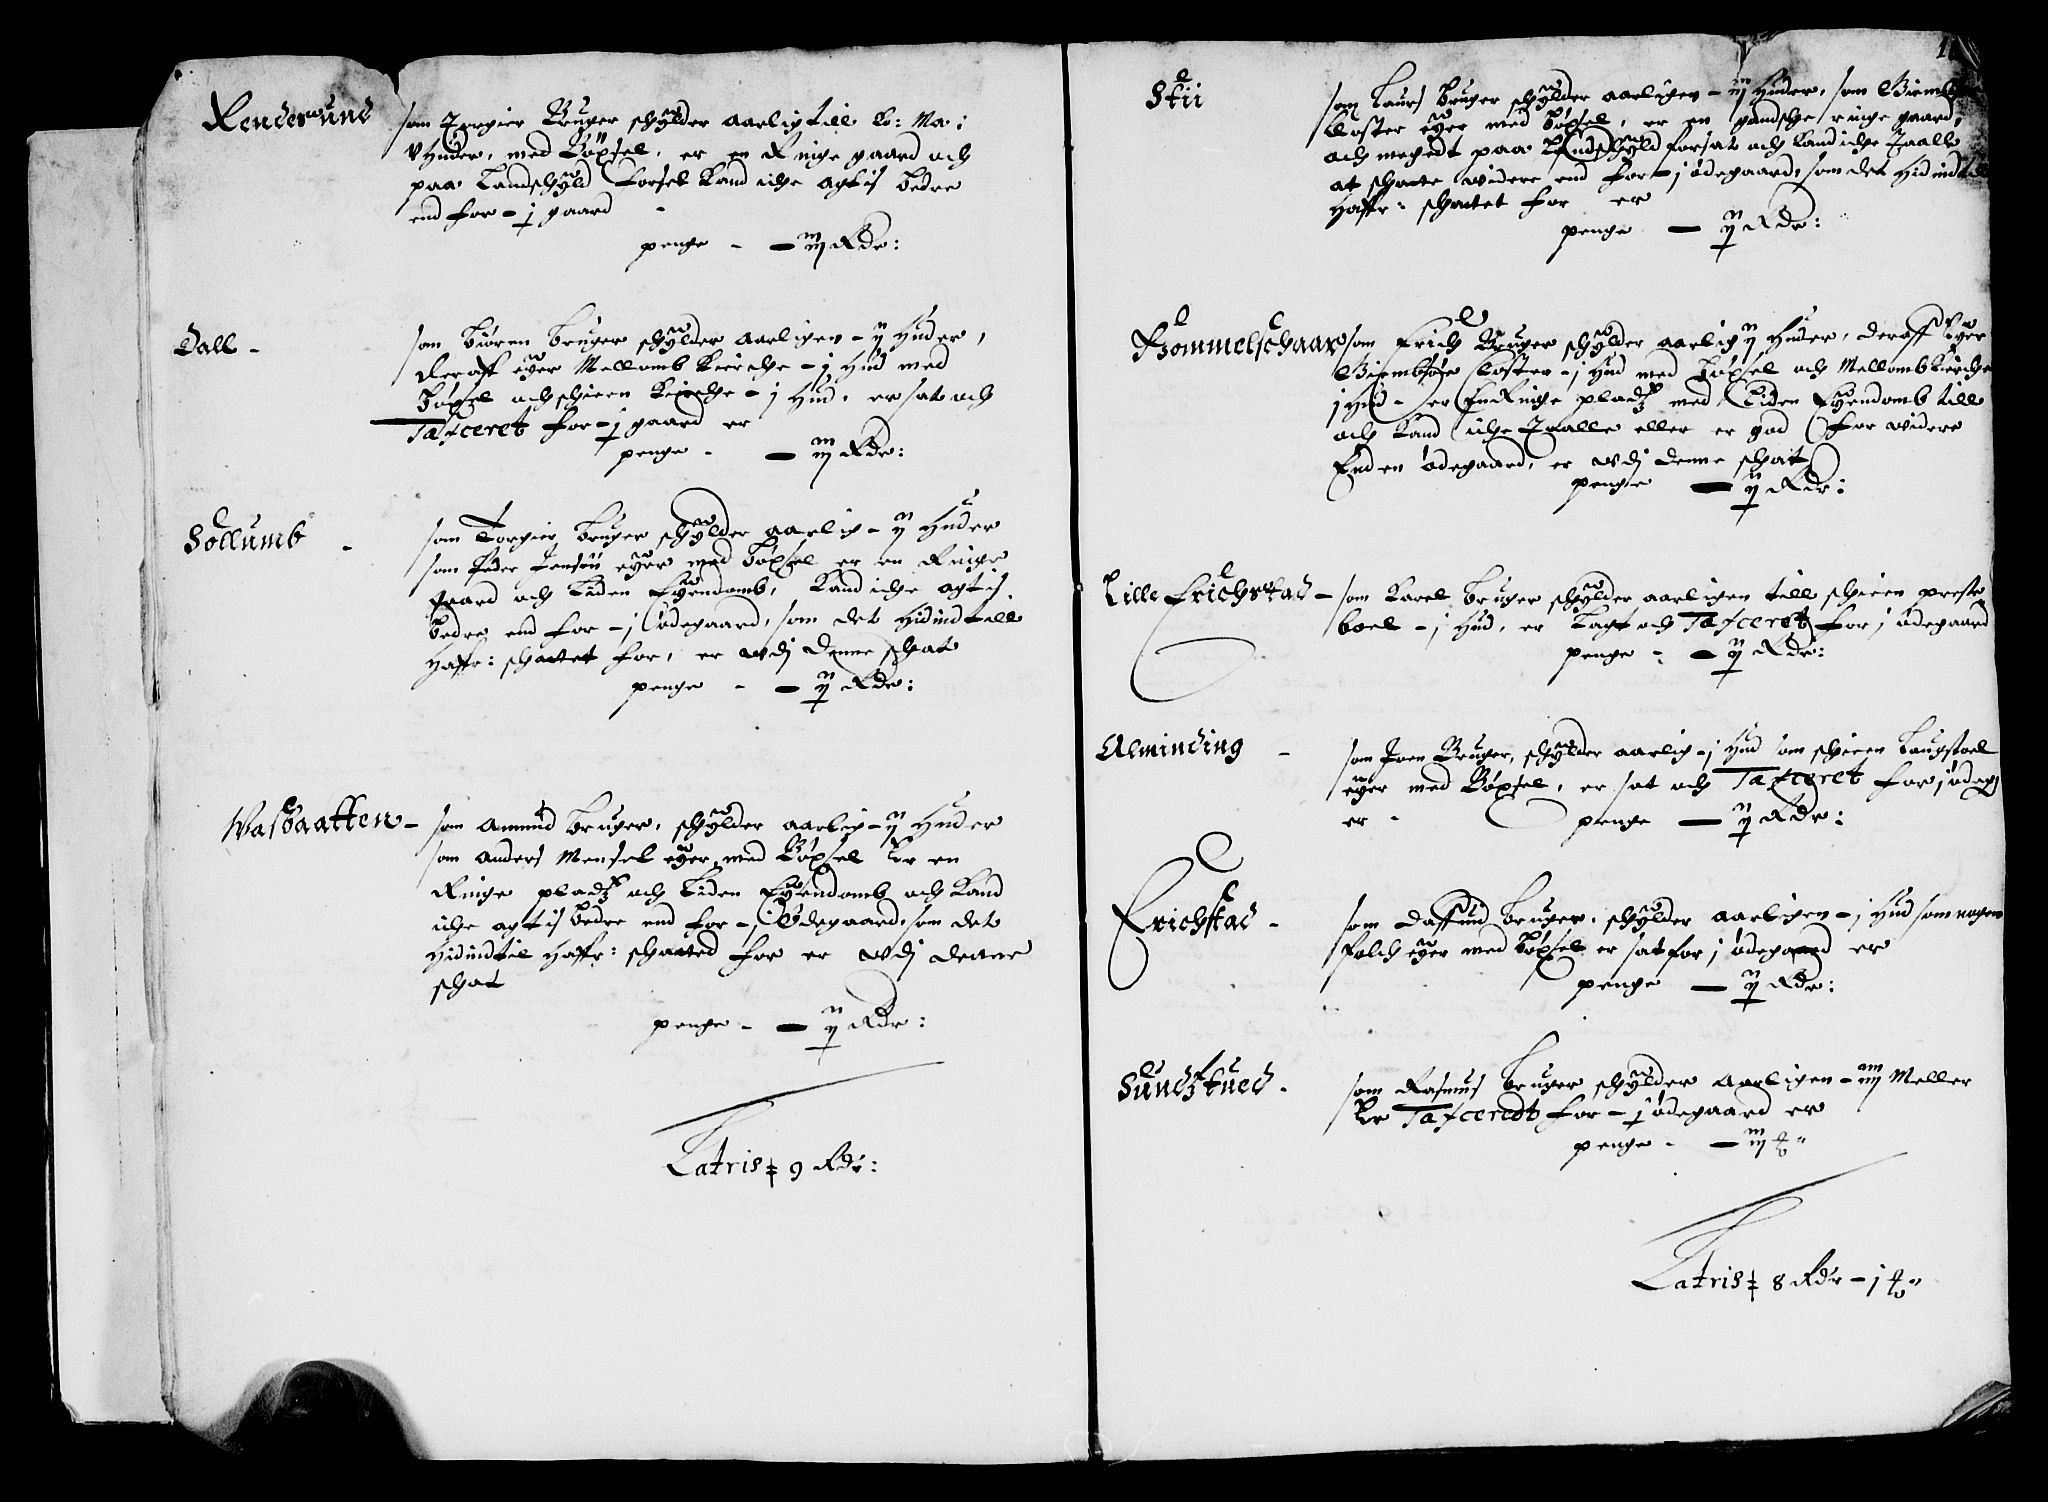 Rendesund som Torgier Bruger schÿlder aarlig till Ko: Ma:
v hyder, med Bøxsel, er en Ringe gaard och
paa Landschÿld forset kand iche agtis bedre
end for - j gaard -
penge - - iij Rdr:
Dall - som Biøren bruger schÿlder aarligen - ij Huder,
deraff eÿer Mellomb Kierche - j Hud med
bøxsel och schieen Kierche - j Hud, er sat och
Taxceret for - j gaard er
penge - - iij Rdr:
Sollumb - som Torgier bruger schÿlder aarlig - ij Huder
som Peder Jensøn eÿer med bøxsel er en Ringe
gaard och Liden Eÿendomb, Kand iche agtis
bedre end for - j ødegaard, som det Hidindtill
Haffr: schattet for, er vdj denne schat
penge - - ij Rdr:
Walbaatten - som Amund bruger, schÿlder aarlig - ij Huder
som Anders Mensel eÿer med Bøxsel Er en
Ringe pladtz och Liden Eÿendomb och Kand
iche agtis bedre end for - j Ødegaard, som det
Hidindtil Haffr: schatted for er vdj denne
schat
penge - - ij Rdr:
Latris 9 Rdr:
Stii som Laurs bruger schÿlder aarligen - iij Huder, som
Closter eÿer med bøxsel, er en gandsche ringe gaard,
och meget paa Landschÿld forsat och Kand iche Taalle
at schatte videre end for - j ødegaard, som det Hidindtil
Haffr: schattet for er
penge - ij Rdr:
Rommelschaar som Erich Bruger schÿlder aarlig ij Huder, deraff Eÿer
Closter - j Hud med bøxsel och Mellomb Kierche
j Hud - er En Ringe pladtz med Liden Eÿendomb till
och Kand iche Taalle eller er god for videre
End en ødegaard, er vdj denne schat
penge - ij Rdr:
Lille Erichstad - som Karel bruger schÿlder aarligen till schieen preste
boel - j Hud, er Lagt och Taxceret for j ødegaard
penge - - ij Rdr:
Alminding - som Joen Bruger, schÿlder aarlig - j Hud som schieen Laugstoel
eÿer med Bøxsel, er sat och Taxceret for j ødeg
er - penge - ij Rdr:
Erichstad - som Daffuid bruger, schÿlder aarligen - j Hud som nogen
folch eÿer med bøxsel er sat for j ødegaard er
penge - ij Rdr:
Sundstued - som Rasmus bruger schÿlder aarligen - iiij Meller
Er Taxceredt for - j ødegaard er
penge - - iij
Latris 8 Rdr - j